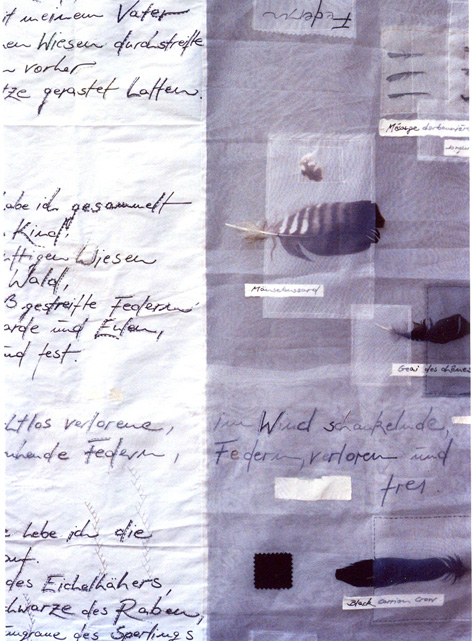 it meinem Vater
en Wiesen durchstreifte
vorher
tze gerastet hatten.
abe ich gesammelt
Kind,
ftigen Wiesen
Wald,
ß gestreifte Federn
arde und Eulen,
nd fest.
htlos verlorene,
hende Federn,
e hebe ich die
auf.
des Eichelhähers,
chwarze des Raben,
ngraue des Sperlings
Federn
Mäusebussard
Geai des chênes
im Wind schaukelnde,
Federn, verloren und
frei.
Black carrion Crow